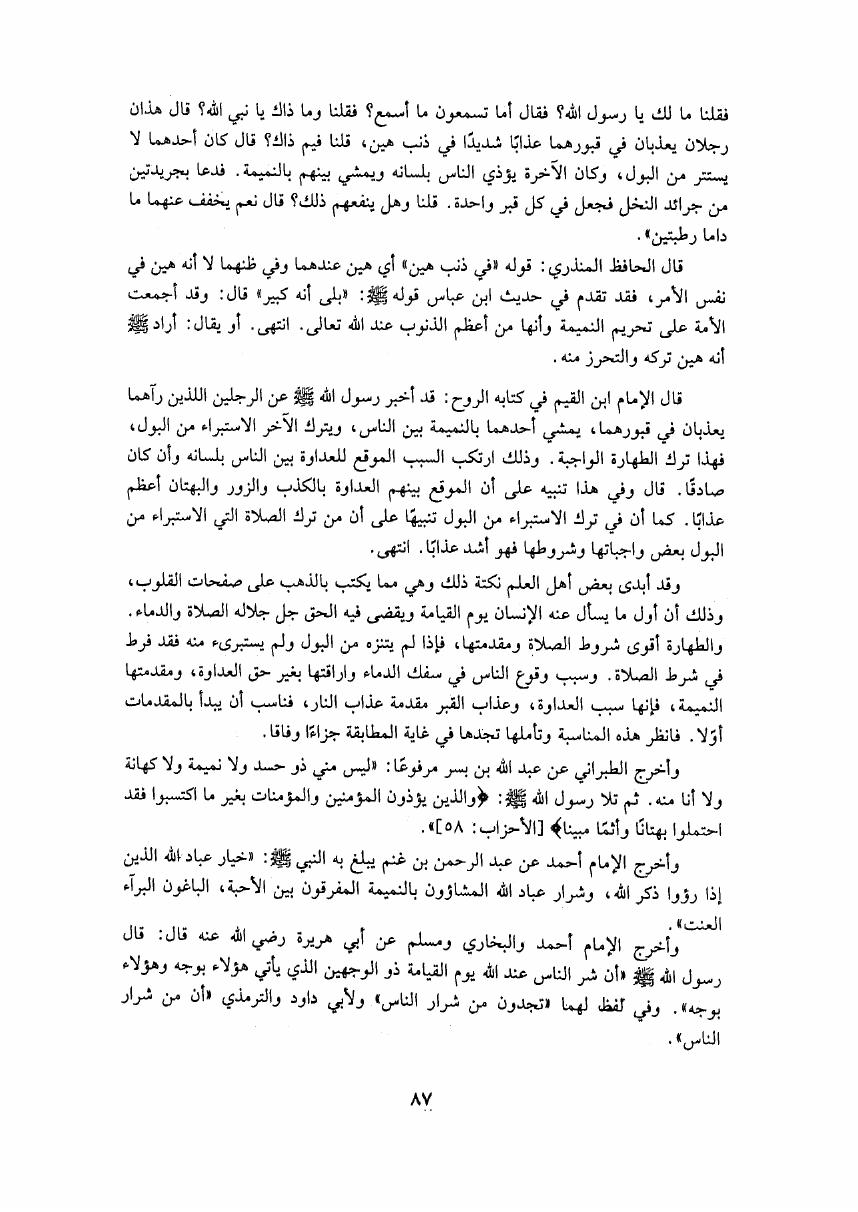 فقلنا ما لك يا رسول الله؟ فقال أما تسمعون ما أسمع؟ فقلنا وما ذاك يا نبي الله؟ قال هذان
رجلان يعذبان في قبورهما عذابًا شديدًا في ذنب هين، قلنا فيم ذاك؟ قال كان أحدهما لا
يستتر من البول، وكان الآخرة يؤذي الناس بلسانه ويمشي بينهم بالنميمة. فدعا بجريدتين
من جرائد النخل فجعل في كل قبر واحدة. قلنا وهل ينفعهم ذلك؟ قال نعم يخفف عنهما ما
داما رطبتين».
قال الحافظ المنذري: قوله «في ذنب هين» أي هين عندهما وفي ظنهما لا أنه هين في
نفس الأمر، فقد تقدم في حديث ابن عباس قوله ﷺ: «بلى أنه كبير» قال: وقد أجمعت
الأمة على تحريم النميمة وأنها من أعظم الذنوب عند الله تعالى. انتهى. أو يقال: أراد ﷺ
أنه هين تركه والتحرز منه.
قال الإمام ابن القيم في كتابه الروح: قد أخبر رسول الله ﷺ عن الرجلين اللذين رآهما
يعذبان في قبورهما، يمشي أحدهما بالنميمة بين الناس، ويترك الآخر الاستبراء من البول،
فهذا ترك الطهارة الواجبة. وذلك ارتكب السبب الموقع للعداوة بين الناس بلسانه وأن كان
صادقًا. قال وفي هذا تنبيه على أن الموقع بينهم العداوة بالكذب والزور والبهتان أعظم
عذابًا. كما أن في ترك الاستبراء من البول تنبيهًا على أن من ترك الصلاة التي الاستبراء من
البول بعض واجباتها وشروطها فهو أشد عذابًا. انتهى.
وقد أبدى بعض أهل العلم نكتة ذلك وهي مما يكتب بالذهب على صفحات القلوب،
وذلك أن أول ما يسأل عنه الإنسان يوم القيامة ويقضى فيه الحق جل جلاله الصلاة والدماء.
والطهارة أقوى شروط الصلاة ومقدمتها، فإذا لم يتنزه من البول ولم يستبرىء منه فقد فرط
في شرط الصلاة. وسبب وقوع الناس في سفك الدماء واراقتها بغير حق العداوة، ومقدمتها
النميمة، فإنها سبب العداوة، وعذاب القبر مقدمة عذاب النار، فناسب أن يبدأ بالمقدمات
أوّلا. فانظر هذه المناسبة وتأملها تجدها في غاية المطابقة جزاءًا وفاقا.
وأخرج الطبراني عن عبد الله بن بسر مرفوعًا: «ليس مني ذو حسد ولا نميمة ولا كهانة
ولا أنا منه. ثم تلا رسول الله ﷺ: ﴿والذين يؤذون المؤمنين والمؤمنات بغير ما اكتسبوا فقد
احتملوا بهتانًا وأثمًا مبينا﴾ [الأحزاب: ٥٨]».
وأخرج الإمام أحمد عن عبد الرحمن بن غنم يبلغ به النبي ﷺ: «خيار عباد الله الذين
إذا رؤوا ذكر الله، وشرار عباد الله المشاؤون بالنميمة المفرقون بين الأحبة، الباغون البرآء
العنت».
وأخرج الإمام أحمد والبخاري ومسلم عن أبي هريرة رضي الله عنه قال: قال
رسول الله ﷺ «أن شر الناس عند الله يوم القيامة ذو الوجهين الذي يأتي هؤلاء بوجه وهؤلاء
بوجه». وفي لفظ لهما «تجدون من شرار الناس» ولأبي داود والترمذي «أن من شرار
الناس».
٨٧